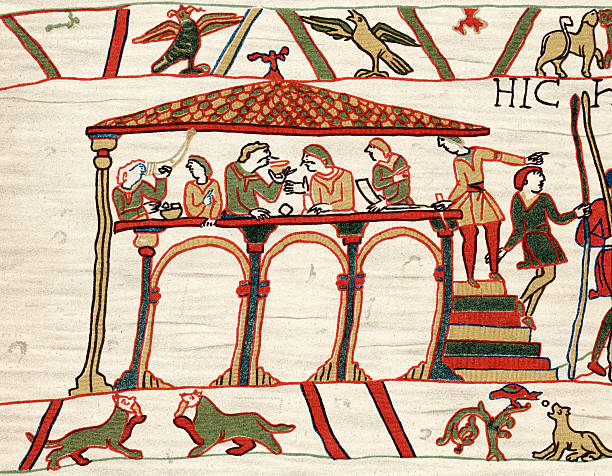 HIC H